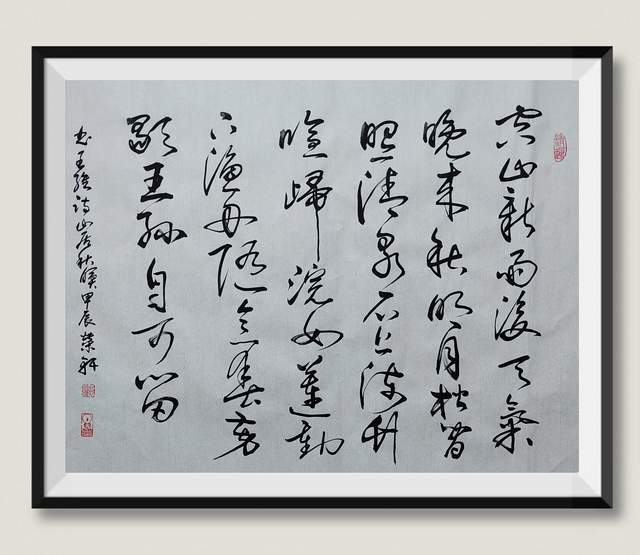 空山新雨後天氣
晚來秋明月松間
照清泉石上流竹
喧歸浣女蓮動
下漁舟隨意春芳
歇王孫自可留
書王維詩山居秋暝甲辰榮